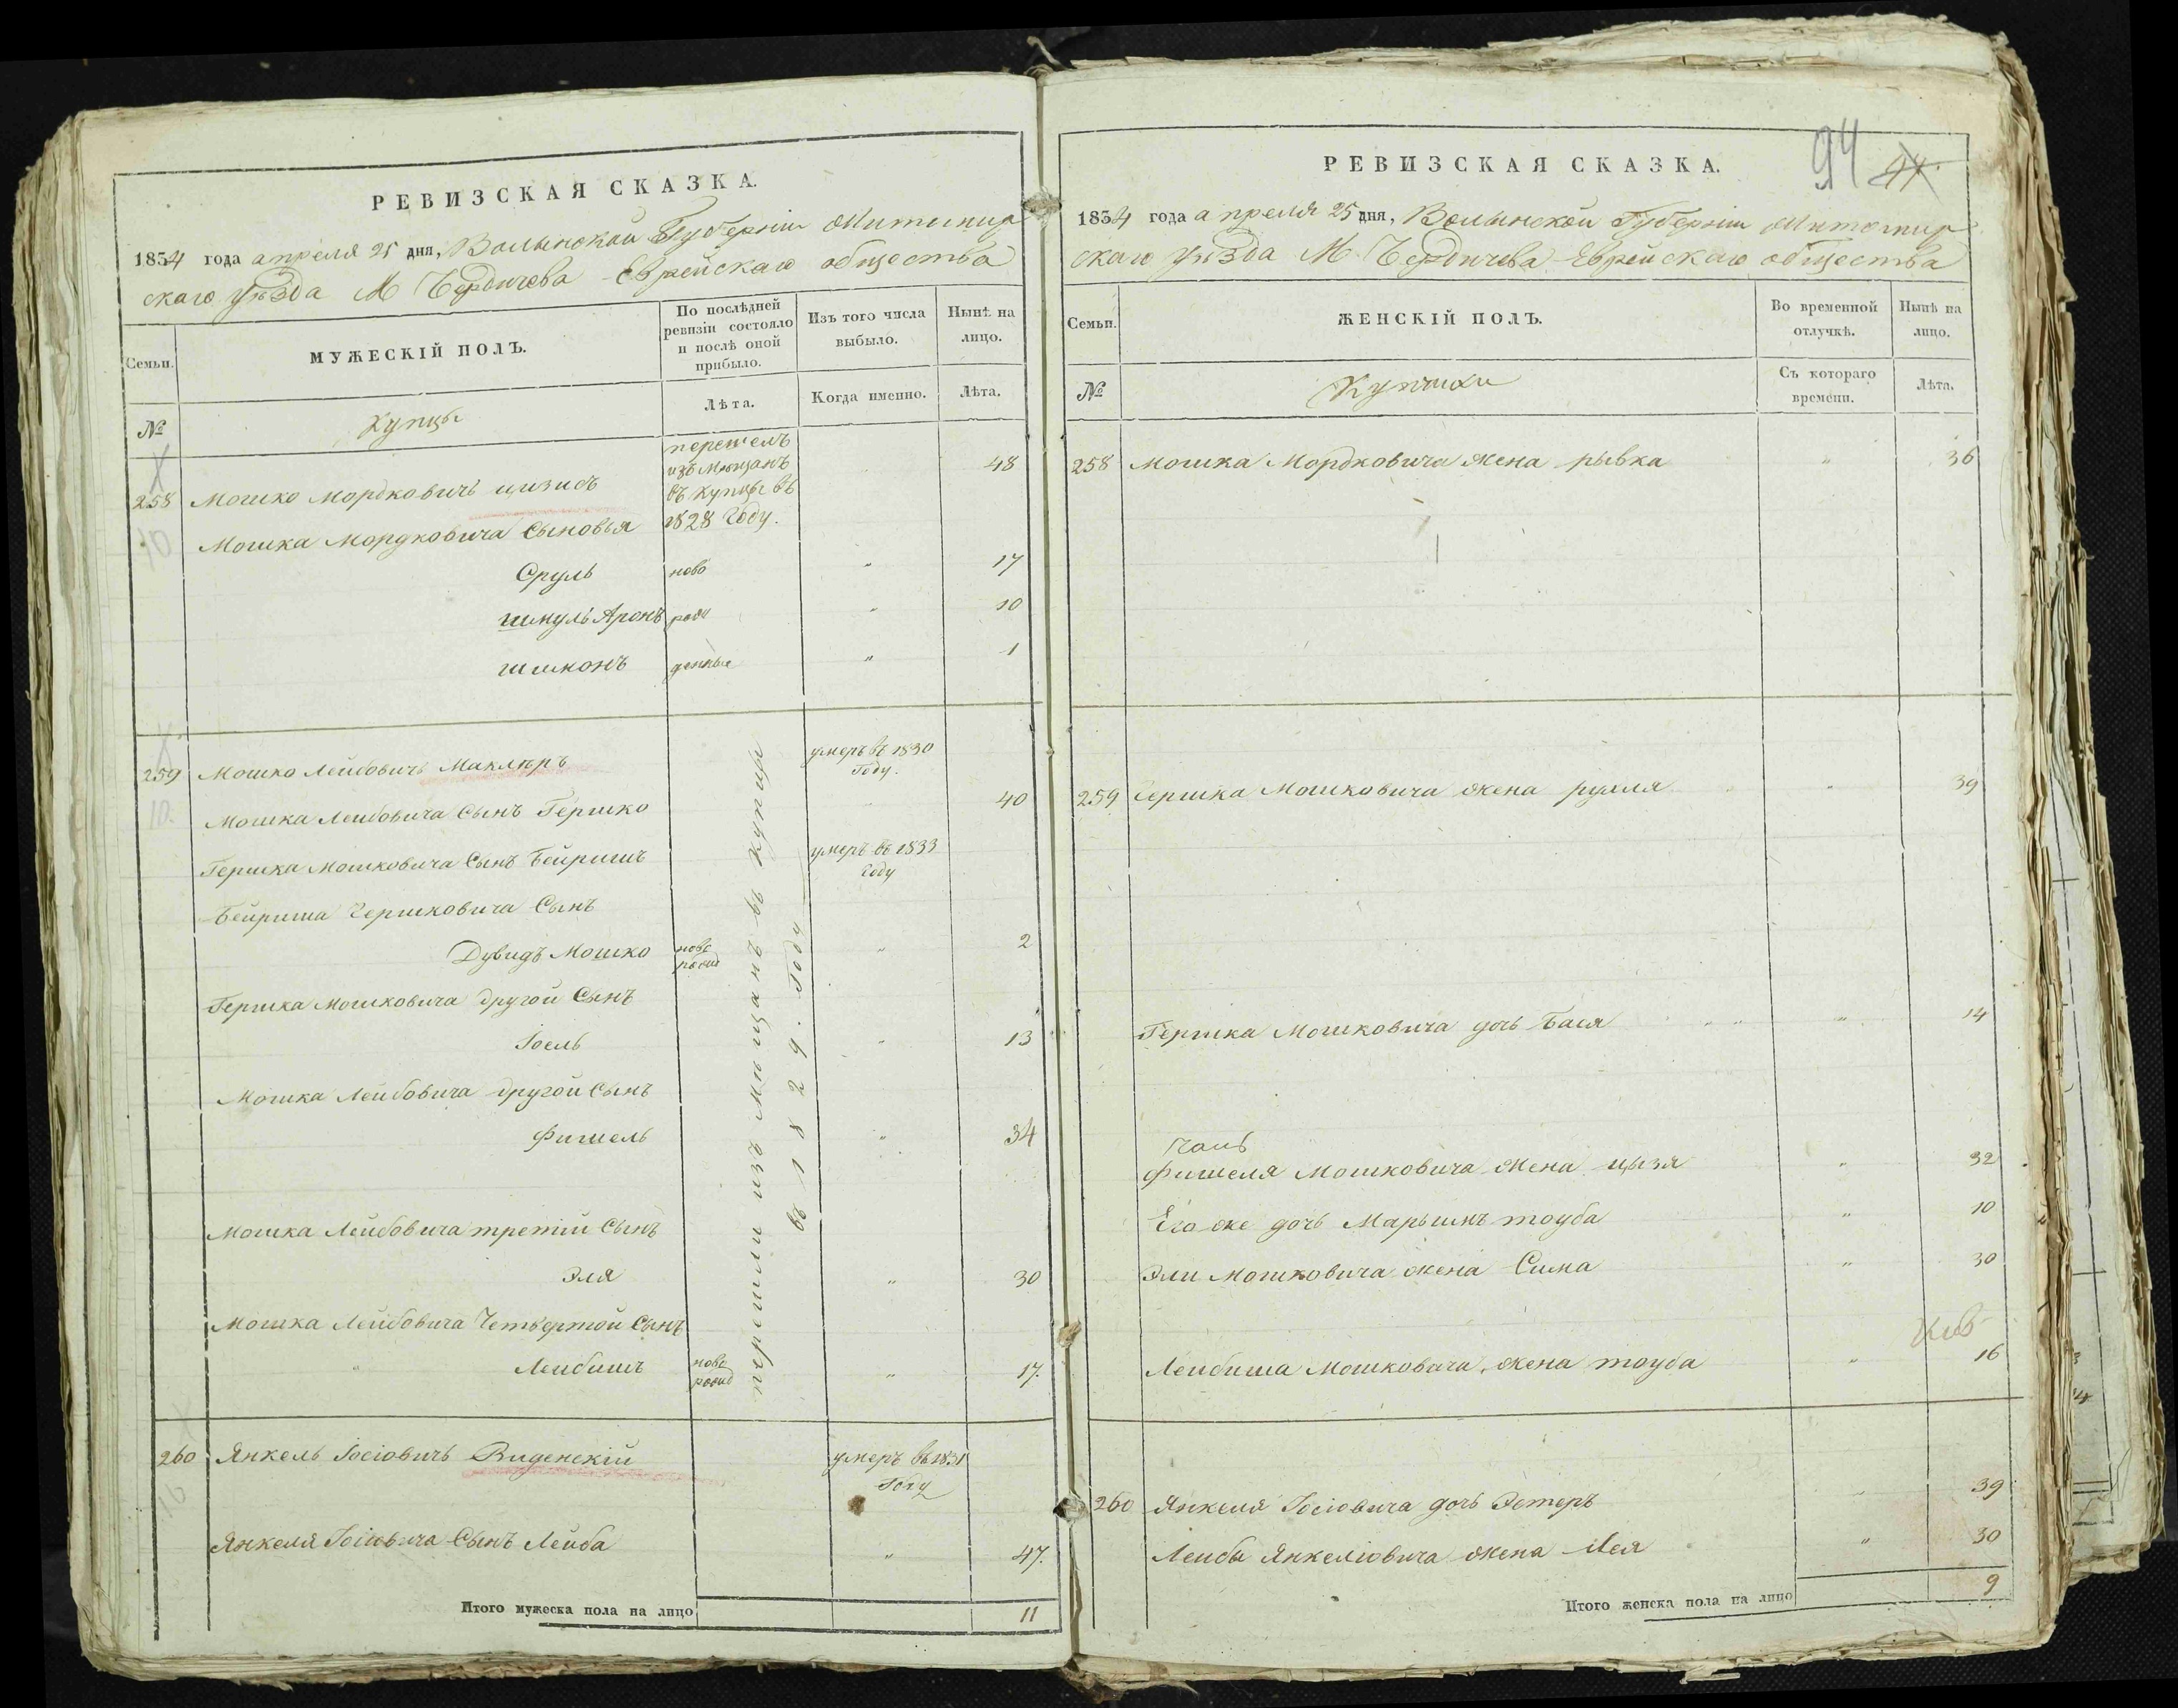 РЕВИЗСКАЯ СКАЗКА.
1834 года апреля 25 дня, Волынской Губерніи Житомир
скаго уѣзда М Бердичева Еврейскаго общества
Семьи.
МУЖЕСКІЙ ПОЛЪ.
По послѣдней ревизіи состояло и послѣ оной прибыло.
Изъ того числа выбыло.
Нынѣ на лицо.
№
Купцы
Лѣта.
Когда именно.
Лѣта.
перешелъ
изъ Мѣщанъ
въ купцы въ
1828 Году.
258 Мошко Мордковичъ 48
Мошка Мордковича Сыновья
Сруль ново " 17
Шмуль Аронъ рож " 10
Шимонъ денные " 1
перешли изъ Мѣщанъ въ купцы
въ 1829. Году
259 Мошко Лейбовичъ Маклѣръ умеръ въ 1830
Году.
Мошка Лейбовича Сынъ Гершко " 40
Гершка Мошковича Сынъ Бейришъ умеръ въ 1833
Году
Бейриша Гершковича Сынъ
Дувидъ Мошко ново
рожд " 2
Гершка Мошковича другой Сынъ
Іоель " 13
Мошка Лейбовича другой Сынъ
Фишель " 34
Мошка Лейбовича третій Сынъ
Эля " 30
Мошка Лейбовича Четвертой Сынъ
" Лейбишъ ново
рожд " 17.
260 Янкель Іосіовичъ Виденскій умеръ въ 1831
Году
Янкеля Іосіовича Сынъ Лейба " 47.
Итого мужеска пола на лицо 11
94 44.
РЕВИЗСКАЯ СКАЗКА.
1834 года апреля 25 дня, Волынской Губерніи Житомир
скаго уѣзда М. Бердичева Еврейскаго общества
Семьи.
ЖЕНСКІЙ ПОЛЪ.
Во временной отлучкѣ.
Нынѣ на лицо.
№
Купчихи
Съ котораго времени.
Лѣта.
258 Мошка Мордковича жена рывка " 36
259 Гершка Мошковича жена рухля " 39
Гершка Мошковича дочь Бася " 14
Фишеля Мошковича жена цызя " 32
Его же дочь Марьимъ тоуба " 10
Эли Мошковича жена Сима " 30
Лейбиша Мошковича жена тоуба " 16
260 Янкеля Іосіовича дочь Эстеръ 39
Лейбы Янкеліовича жена Лея " 30
Итого женска пола на лицо 9